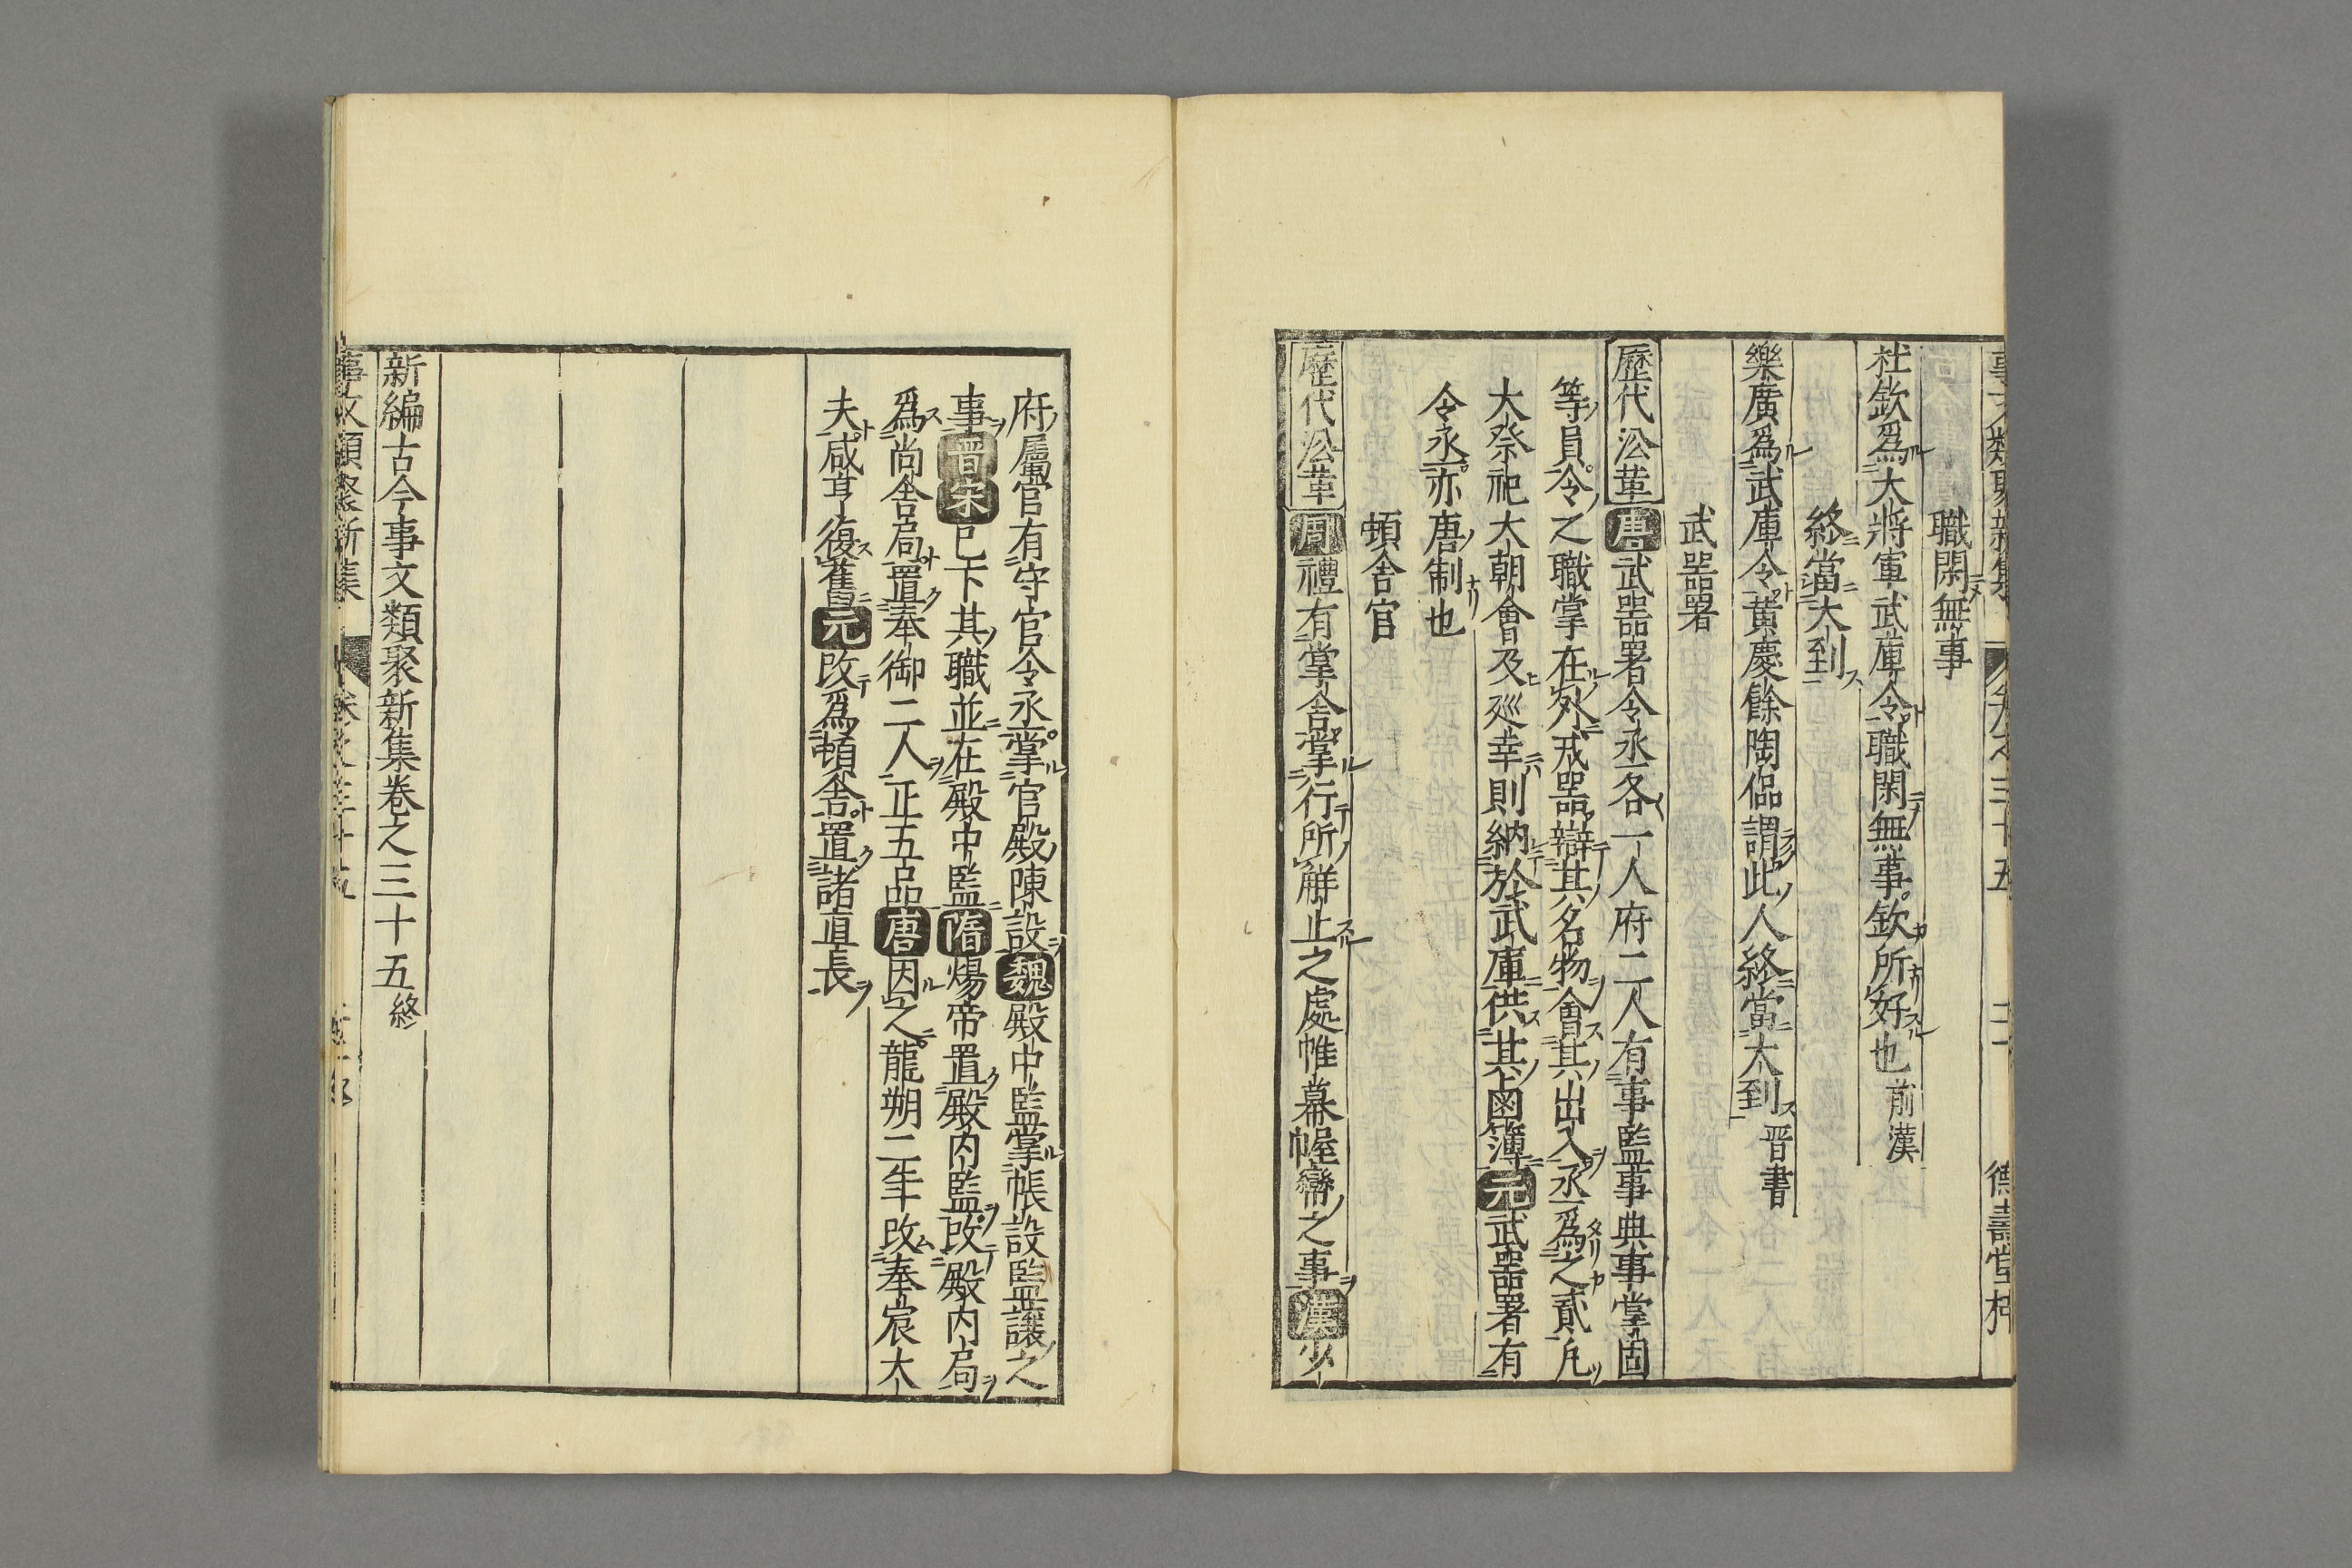 職閑無事
杜欽爲大將軍武庫令職閑無事欽所好也前漢
終當大到
樂廣爲武庫令黃慶餘陶侃謂此人終當大到晋書
武器署
歷代沿革唐武器署令丞各一人府二人有事監事典事掌固
等員令之職掌在外戎器辯其名物會其出入丞爲之貳凡
大祭祀大朝會及廵幸則納於武庫供其鹵簿元武器署有
令丞亦唐制也
頓舍官
歷代沿革周禮有掌舍掌行所觧止之處帷幕幄㡩之事漢少
府屬官有守官令丞掌官殿陳設魏殿中監掌帳設監護之
事晋宋已下其職並在殿中監隋煬帝置殿内監改殿内局
爲尚舍局置奉御二人正五品唐因之龍朔二年改奉宸大
夫咸亨復舊元改爲頓舍置諸直長
新編古今事文類聚新集卷之三十五終